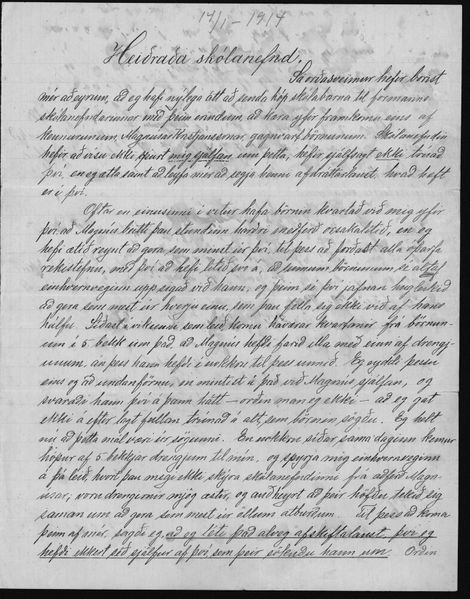 14/1 - 1914
Heiðraða skólanefnd.
Sá orðasveimur hefir borist
mér að eyrum, að eg hafi nýlega átt að senda hóp skólabarna til formanns
skólanefndarinnar með þeim erindum, að kæra yfir framkomu eins af
kennurunum, Magnúsar, gagnvart börnunum. Skólanefndin
hefir að vísu ekki spurt mig sjálfan um þetta, hefir sjálfsagt ekki trúað
því, en eg ætla samt að leyfa mér að segja henni afdráttarlaust, hvað hæft
er í því.
Oftar en einu sinni í vetur hafa börnin kvartað við mig yfir
því, að Magnús beitti þau stundum harðri meðferð ósakaldið, en eg
hefi ætíð reynt að gera sem minnst úr því, til þess að forðast alla
með því að hefi látið svo á, að sumum börnunum sé altaf
einhvernveginn uppsigað við hann, og þeim sé því jafnan
að gera sem mest úr hverju einu, sem þau fella sig ekki við af hans
hálfu. Síðast í vikunni sem leið komu háværar kvartanir frá börnun-
um í 5 bekk um það, að Magnús hefði farið illa með einn af drengj-
unum, án þess hann hefði í nokkru til þess unnið. Eg eyddi þessu
eins og að undanförnu, en mintist á það við Magnús sjálfan, og
svaraði hann því á þann hátt – orðin man eg ekki – að eg gæti
ekki á eftir lagt fullan trúnað á alt, sem börnin segðu. Eg hélt
nú að þetta mál væri úr sögunni. En nokkru síðar sama daginn kemur
hópur af 5 bekkjar drengjum til mín, og spyrja mig einhvernveginn
á þá leið hvort þau megi ekki skýra skólanefndinni frá aðferð Magn-
úsar, voru drengirnir mjög æstir, og auðheyrt að þeir höfðu tekið sig
saman um að gera sem mest úr öllum atburðum. Til þess að koma
þeim af mér, sagði eg, að eg léti það alveg afskiftalaust, því eg
hefði ekkert séð sjálfur af því, sem þeir sökuðu hann um. Orðin